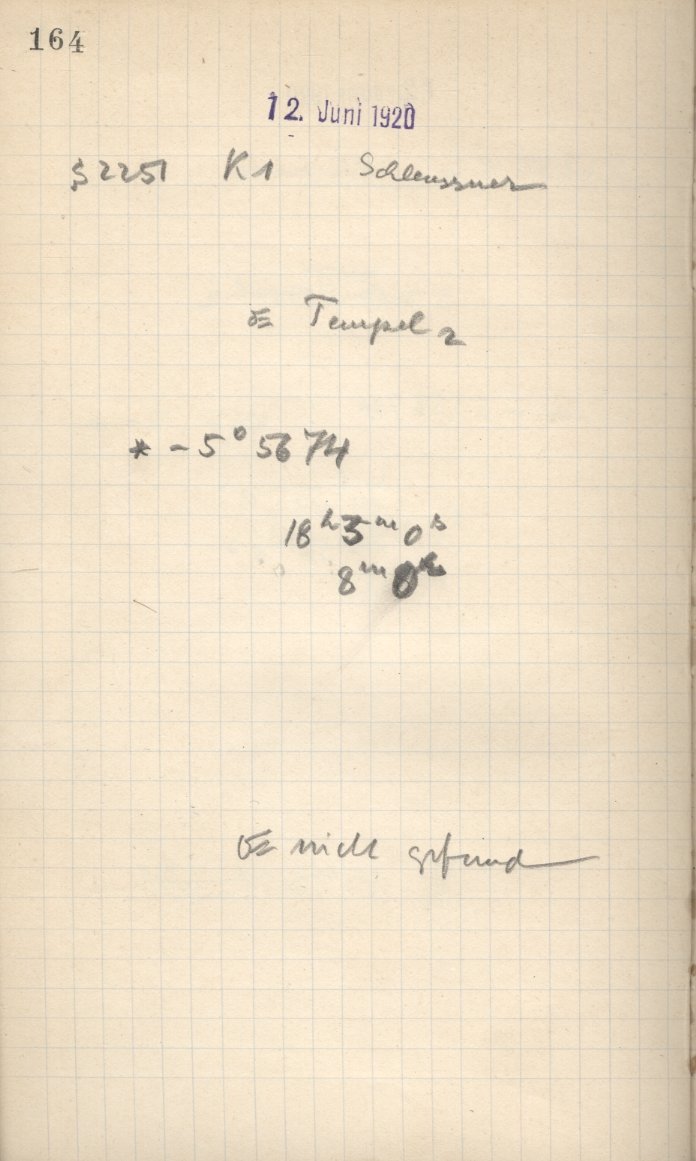 164
12. Juni 1920
S 2251 K1 Schleussner
☄ Tempel 2
* - 5° 5674
18h 5m 0s
8m 0s
☄ nicht gefund